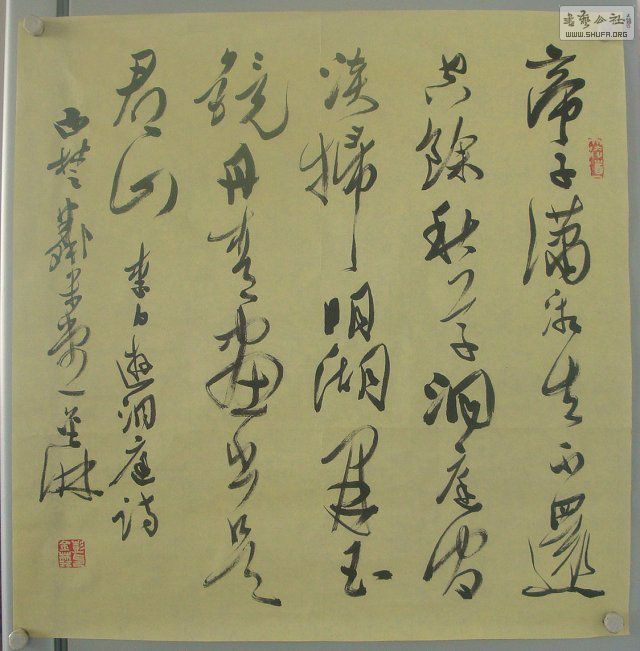 書藝公社
WWW.SHUFA.ORG
帝子瀟湘去不還
空餘秋草洞庭間
淡掃明湖開玉
鏡丹青畫出是
君山 李白遊洞庭詩
西楚